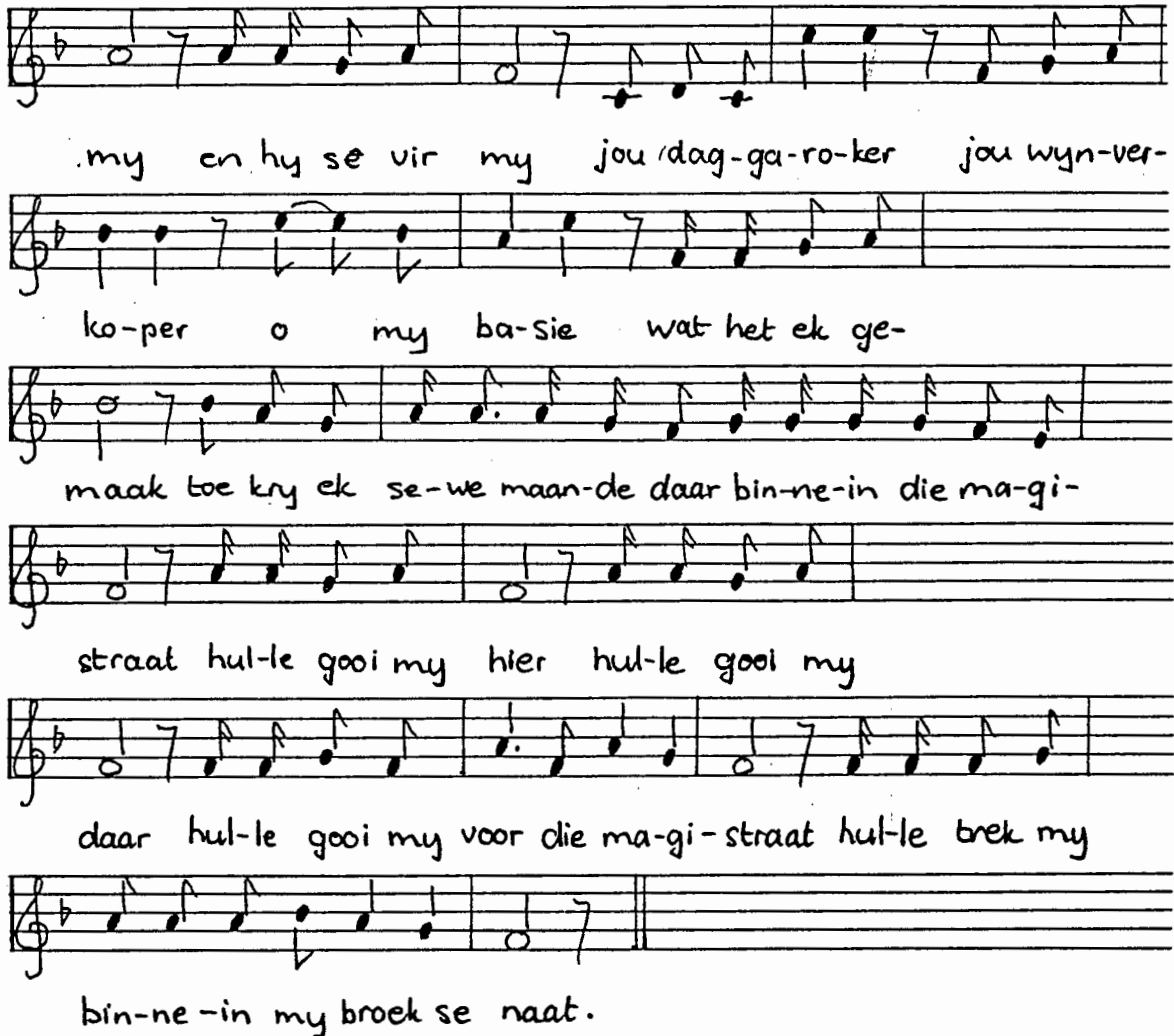 .my en hy sê vir my jou dag-ga-ro-ker jou wyn-ver-
ko-per o my ba-sie wat het ek ge-
maak toe kry ek se-we maan-de daar bin-ne-in die ma-gi-
straat hul-le gooi my hier hul-le gooi my
daar hul-le gooi my voor die ma-gi-straat hul-le trek my
bin-ne-in my broek se naat.